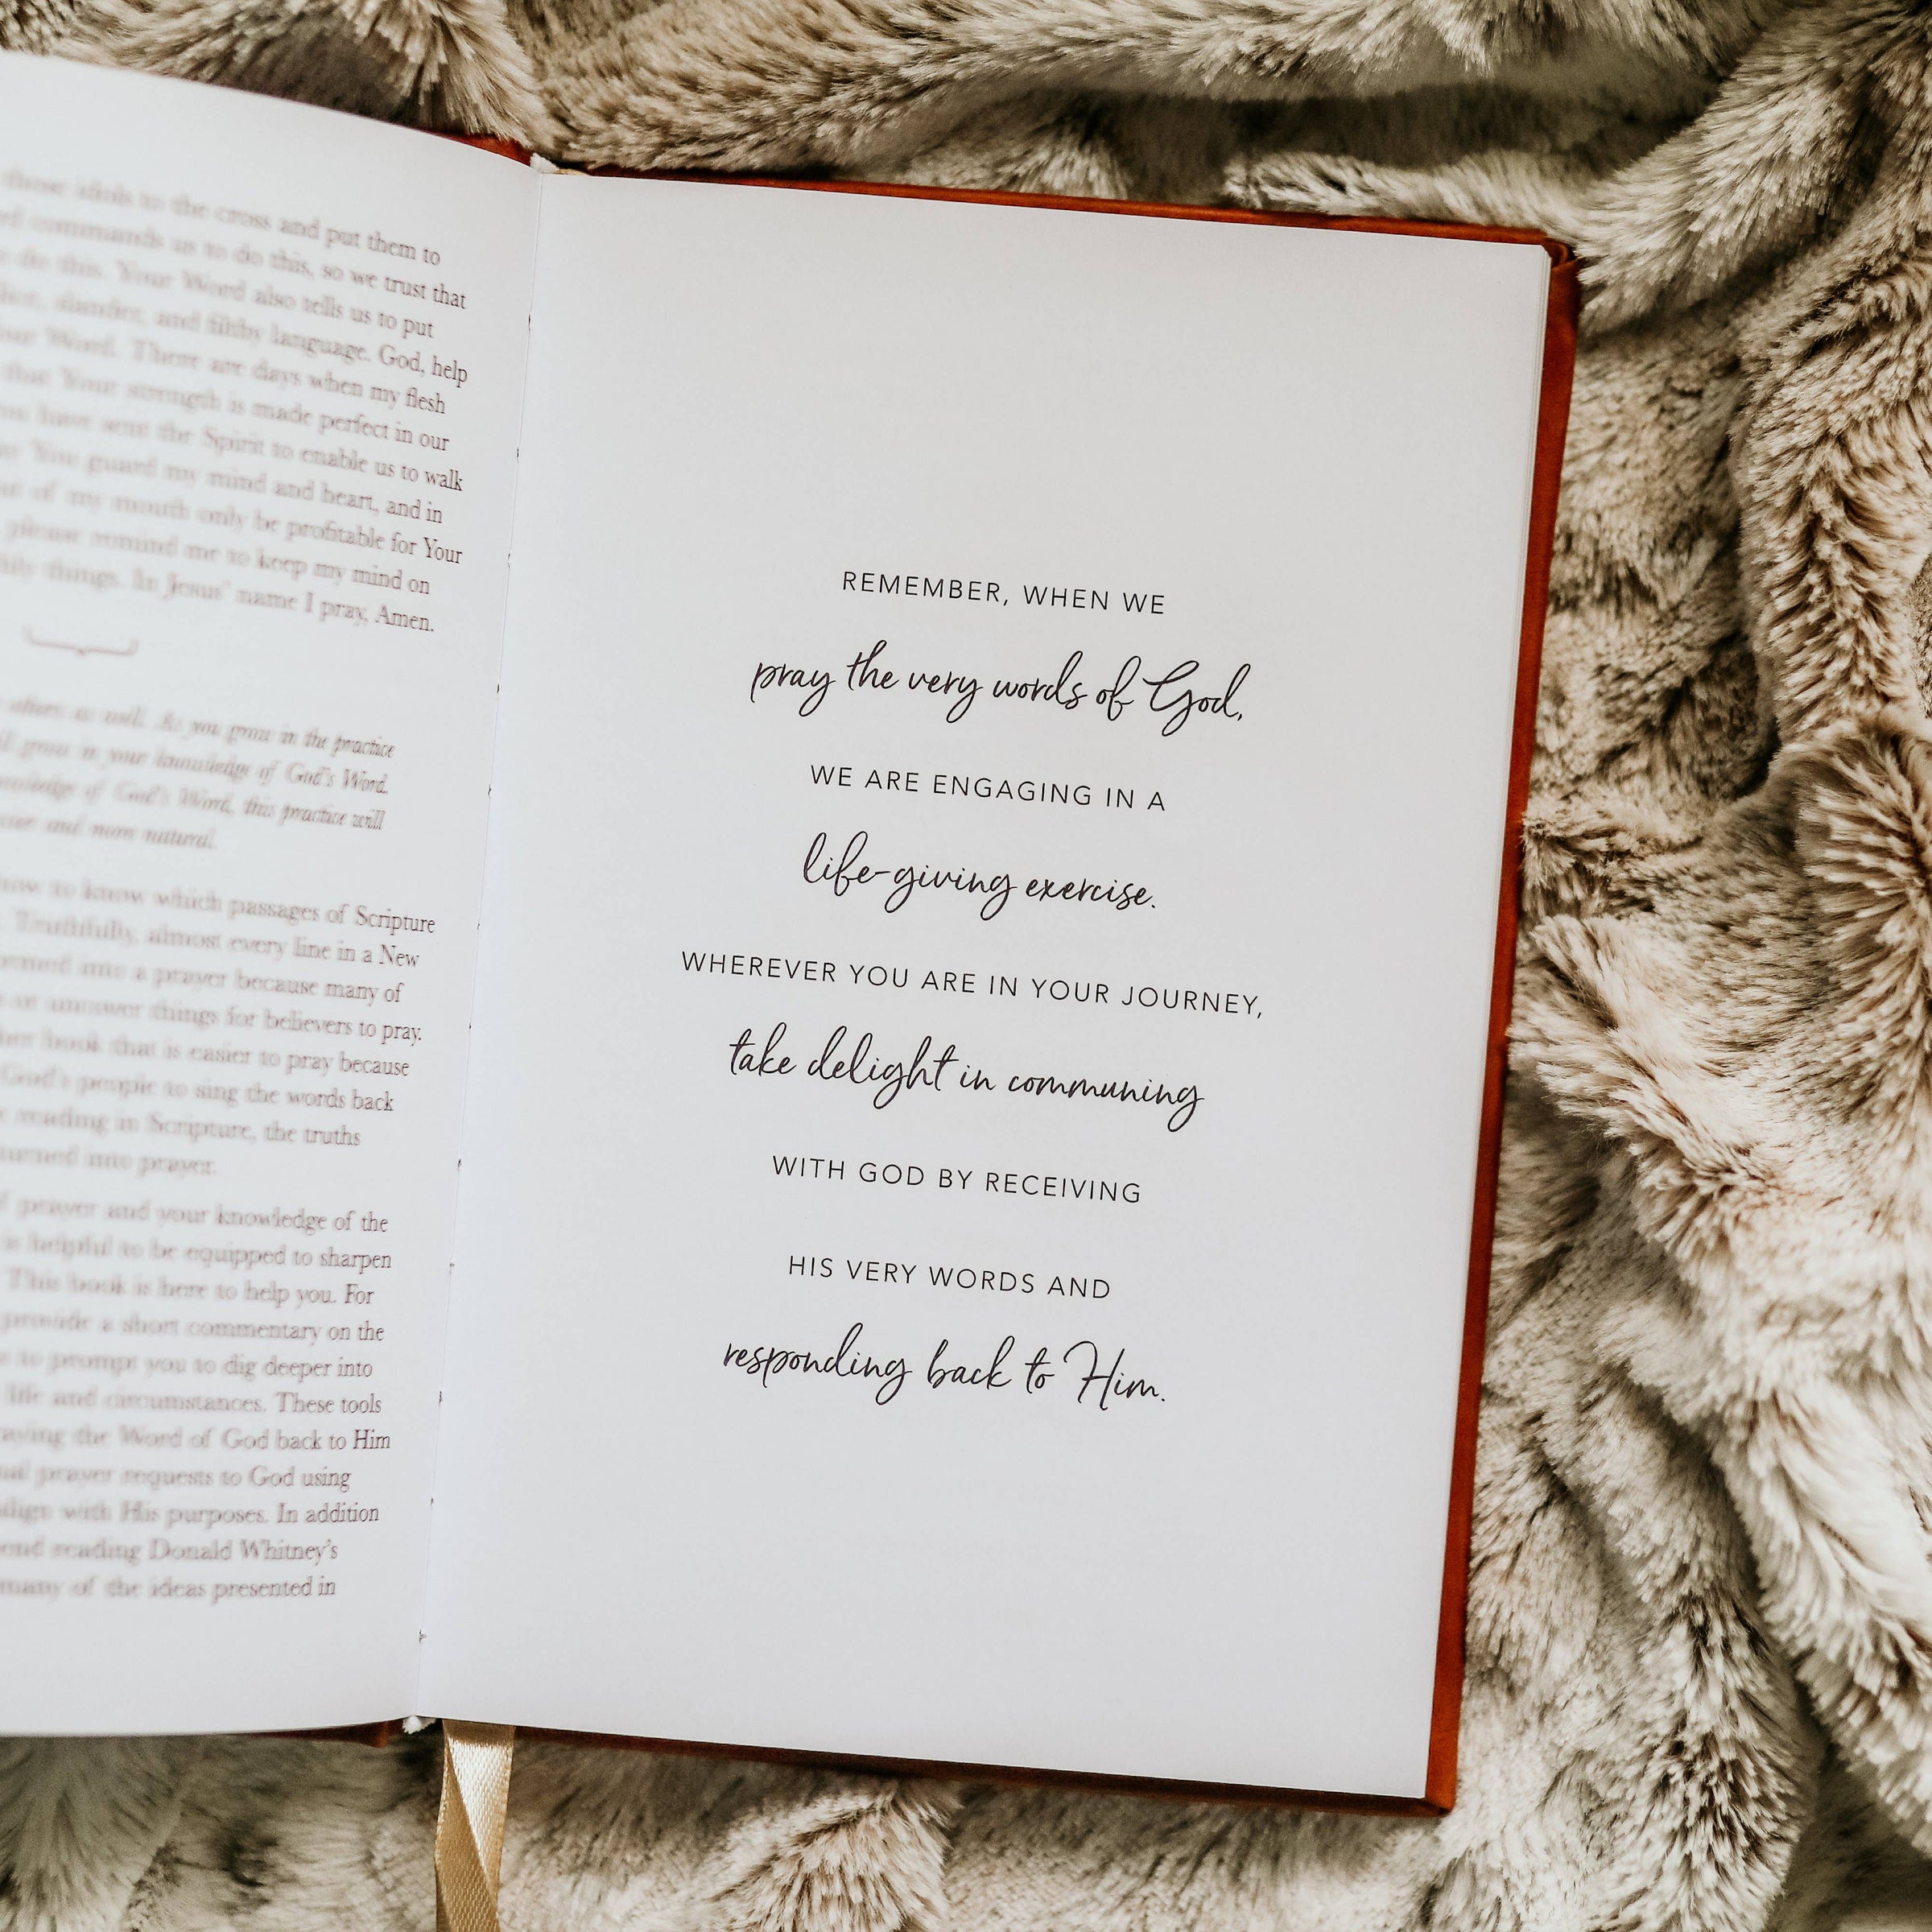 those idols to the cross and put them to
commands us to do this, so we trust that
do this. Your Word also tells us to put
slander, and filthy language. God, help
Word. There are days when my flesh
that Your strength is made perfect in our
have sent the Spirit to enable us to walk
You guard my mind and heart, and in
of my mouth only be profitable for Your
please remind me to keep my mind on
things. In Jesus' name I pray, Amen.
as well. As you grow in the practice
grow in your knowledge of God's Word.
of God's Word, this practice will
and more natural.
to know which passages of Scripture
Truthfully, almost every line in a New
into a prayer because many of
or unanswer things for believers to pray.
book that is easier to pray because
God's people to sing the words back
reading in Scripture, the truths
turned into prayer.
prayer and your knowledge of the
is helpful to be equipped to sharpen
This book is here to help you. For
provide a short commentary on the
to prompt you to dig deeper into
life and circumstances. These tools
the Word of God back to Him
prayer requests to God using
align with His purposes. In addition
reading Donald Whitney's
many of the ideas presented in
REMEMBER, WHEN WE
pray the very words of God,
WE ARE ENGAGING IN A
life-giving exercise.
WHEREVER YOU ARE IN YOUR JOURNEY,
take delight in communing
WITH GOD BY RECEIVING
HIS VERY WORDS AND
responding back to Him.